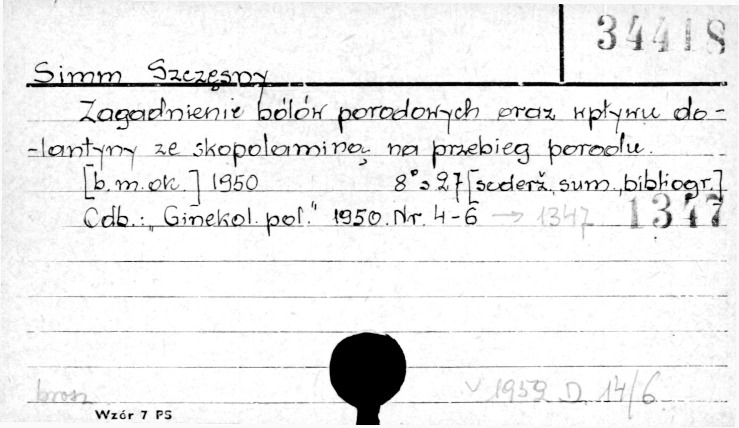 34418
Simm Szczęsny
Zagadnienie bólów porodowych oraz wpływu do-
-lantyny ze skopolaminą na przebieg porodu.
[b.m.ok.] 1950 8° s 27 [sederž., sum., bibliogr.]
Odb.: "Ginekol. pol." 1950. Nr. 4-6 → 1347 1347
brosz. V 1952 D 14/6
Wzór 7 PS